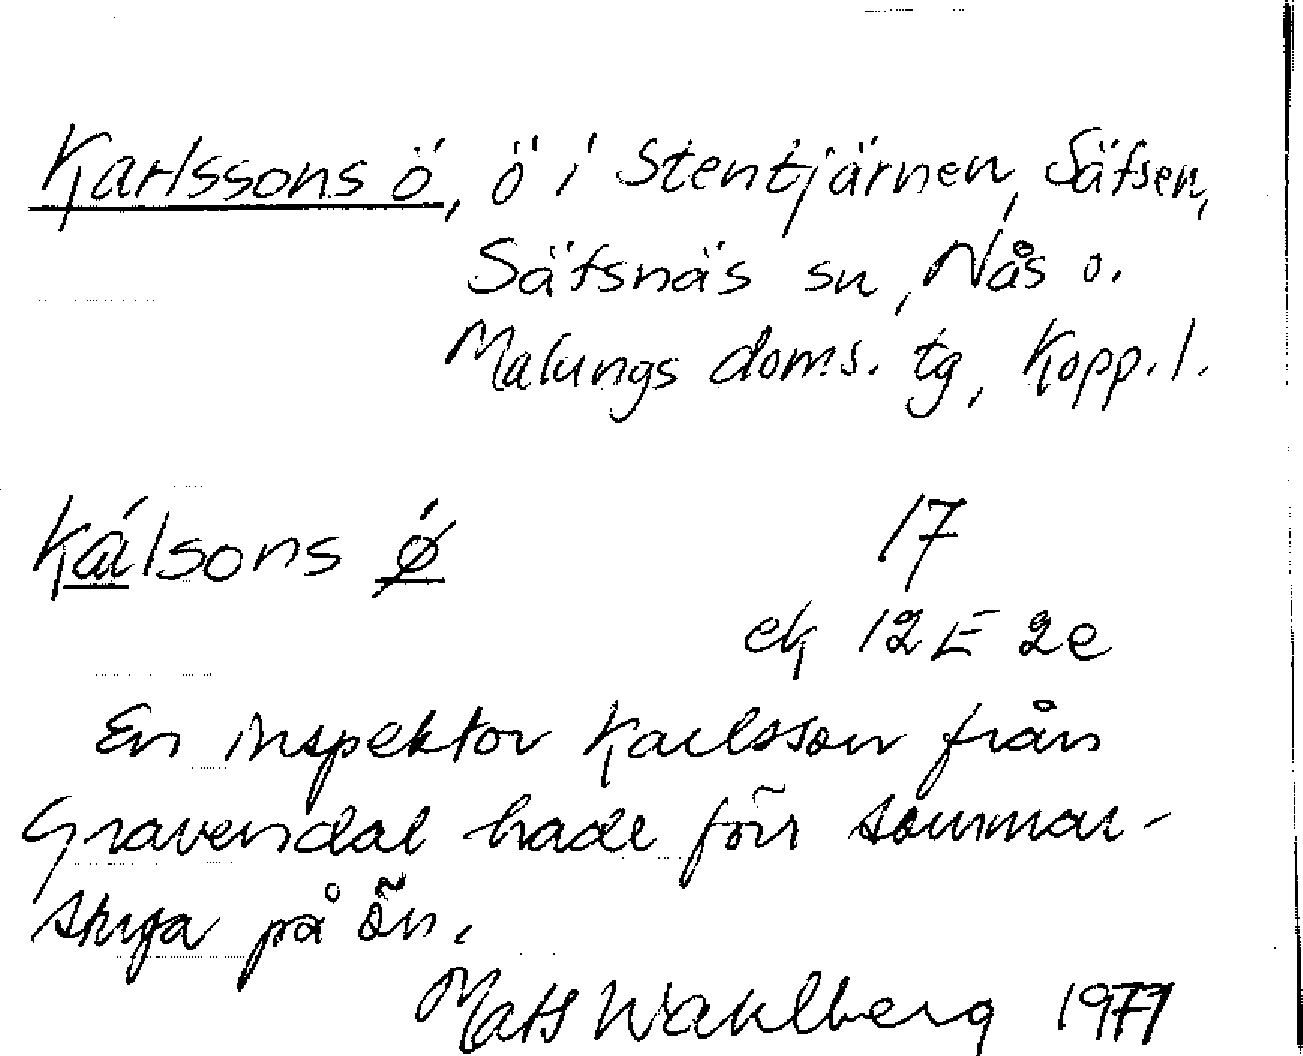 Karlssons ö, ö i Stentjärnen, Säfsen,
Säfsnäs sn, Nås o.
Malungs doms. tg, Kopp. l.
Kálsons ǿ
17
ek 12E 2e
En inspektor Karlsson från
Gravendal hade förr sommar-
stuga på ön.
Mats Wahlberg 1971